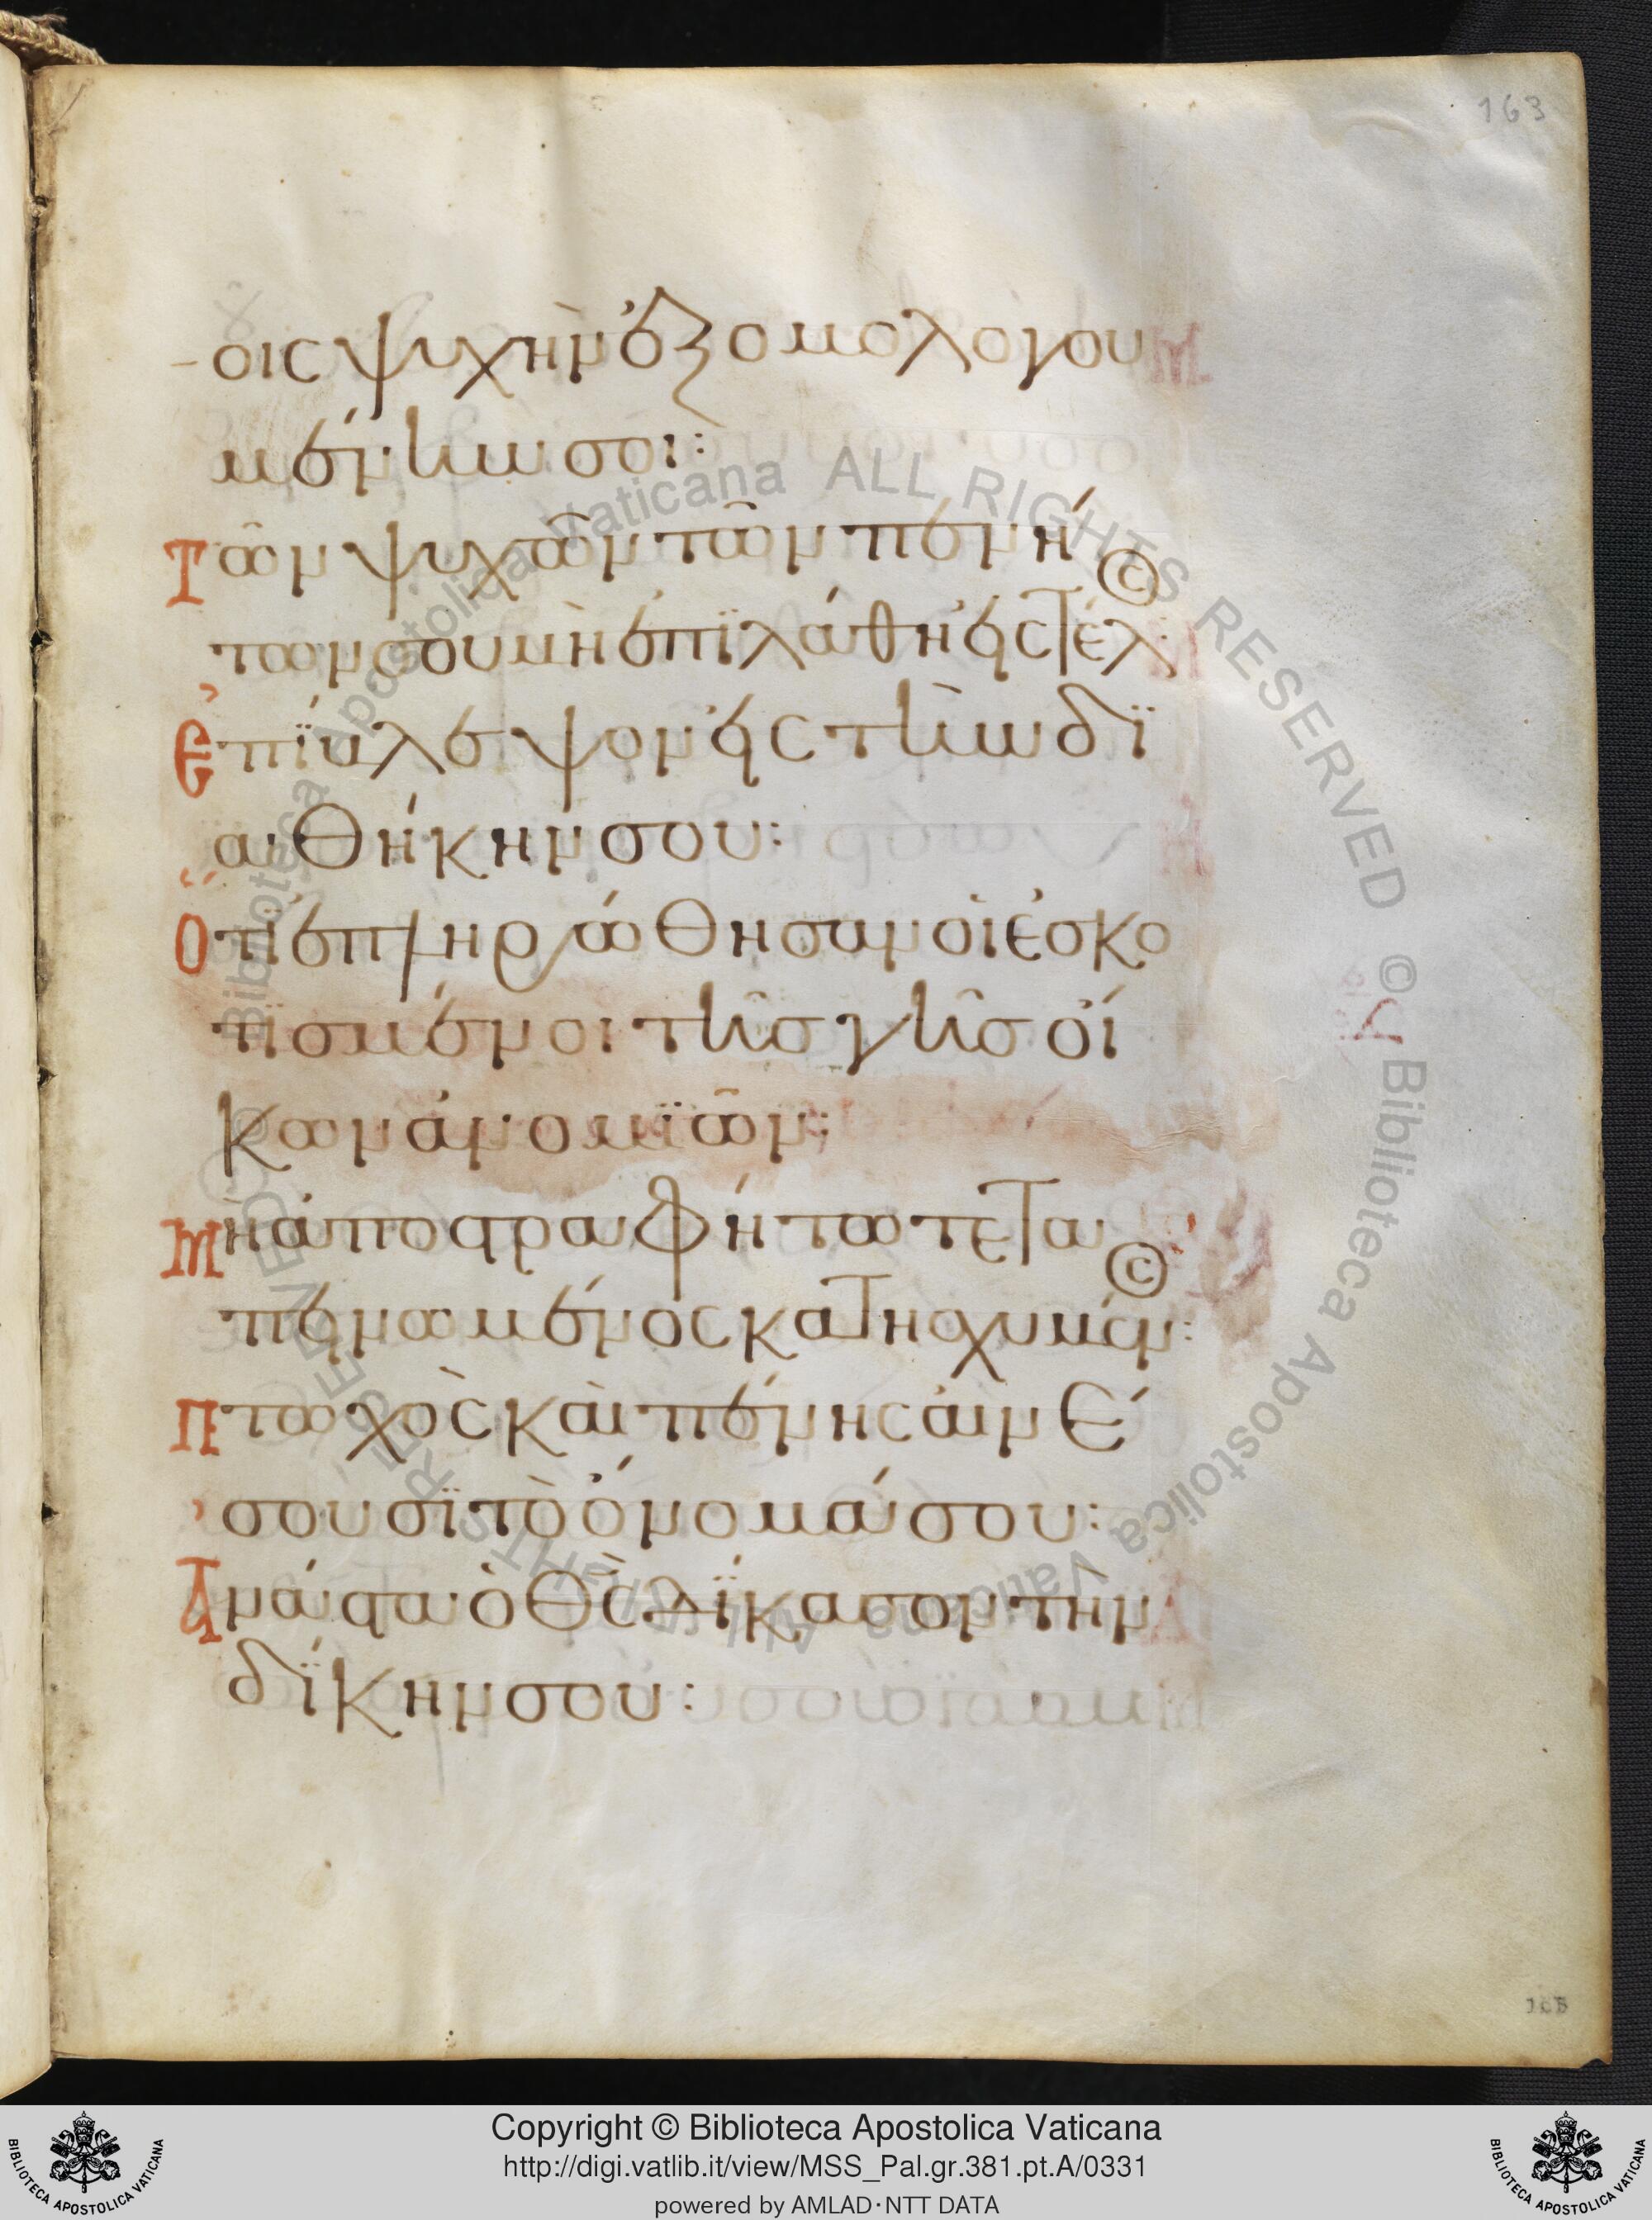 163
οις ψυχὴν ἐξομολογου
μένην σοι:
Τῶν ψυχῶν τῶν πενή
των σου μὴ ἐπϊλάθη εἰς τέλ
Ἐπίβλεψον εἰς τὴν δϊ
αθήκην σου:
Ὅτι ἐπληρώθησαν οἱ ἐσκο
τϊσμένοι τῆς γῆς οἴ
κων ἀνομϊῶν:
Μὴ ἀποστραφήτω τετα
πεινωμένος κατησχυμμέν:
Πτωχὸς καὶ πένης αἰνέ
σουσϊ τὸ ὄνομά σου:
Ἀνάστα ὁ θς δίκασον τὴν
δίκην σου:
163
Copyright © Biblioteca Apostolica Vaticana
http://digi.vatlib.it/view/MSS_Pal.gr.381.pt.A/0331
powered by AMLAD·NTT DATA
BIBLIOTECA APOSTOLICA VATICANA
BIBLIOTECA APOSTOLICA VATICANA